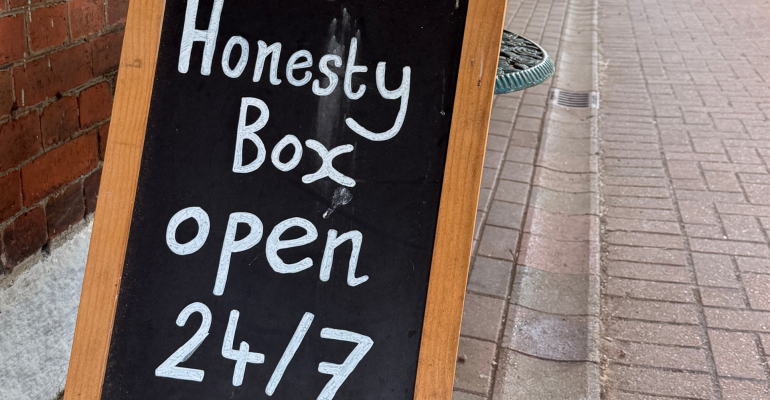 Honesty
Box
open
24/7